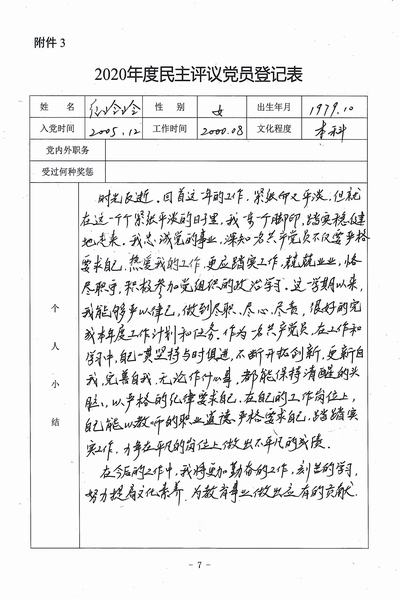 附件 3
2020年度民主评议党员登记表
姓 名 玲玲 性 别 女 出生年月 1979.10
入党时间 2005.12 工作时间 2000.08 文化程度 本科
党内外职务
受过何种奖惩
个人小结
时光飞逝，回首这一年的工作，紧张而又平淡，但就
在这一个个紧张平淡的日子里，我一步一个脚印，踏实稳健
地走来。我忠诚党的事业，深知为共产党员不仅要严格
要求自己，热爱我的工作，更应踏实工作，兢兢业业，恪
尽职守，积极参加党组织的政治学习。这一学期以来，
我能够严以律己，做到尽职、尽心、尽责，很好的完
成本年度工作计划和任务。作为一名共产党员，在工作和
学习中，自己一贯坚持与时俱进，不断开拓创新，更新自
我，完善自我，无论作什么事，都能保持清醒的头
脑，以严格的纪律要求自己，在自己的工作岗位上，
自己能以教师的职业道德严格要求自己，踏踏实
实工作，力争在平凡的岗位上做出不平凡的成绩。
在今后的工作中，我将更加勤奋的工作，刻苦的学习，
努力提高文化素养，为教育事业做出应有的贡献。
- 7 -